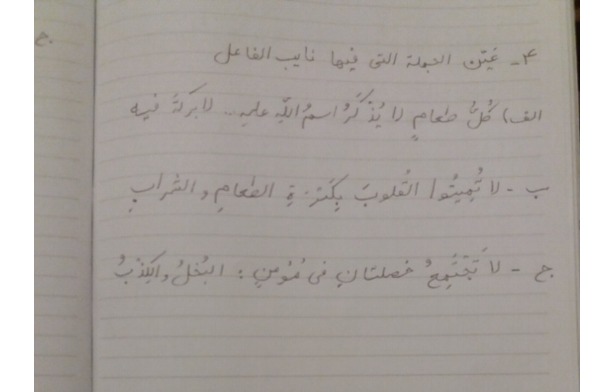 ٤- عَيّن الجملة التی فیها نایب الفاعل
الف) کُلُّ طعامٍ لا یُذْکَرُ اسمُ اللّهِ علیهِ.. لا برکةَ فیه
ب - لا تُمِیتُوا القُلوبَ بِکَثرَةِ الطعامِ و الشرابِ
ج - لا تَجْتَمِعُ خصلتانِ فی مُؤمنٍ : البُخلُ و الکِذْبُ
ج.